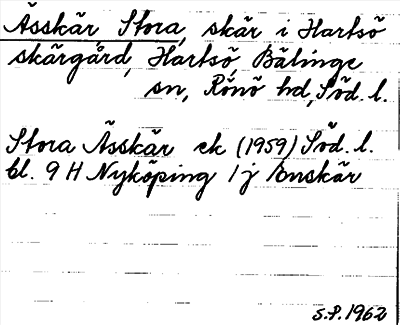 Ässkär Stora, skär i Hartsö
skärgård, Hartsö, Bälinge
sn, Rönö hd, Söd. l.
Stora Ässkär ek (1959) Söd. l.
bl. 9 H Nyköping 1 j Bonskär
S.P. 1962